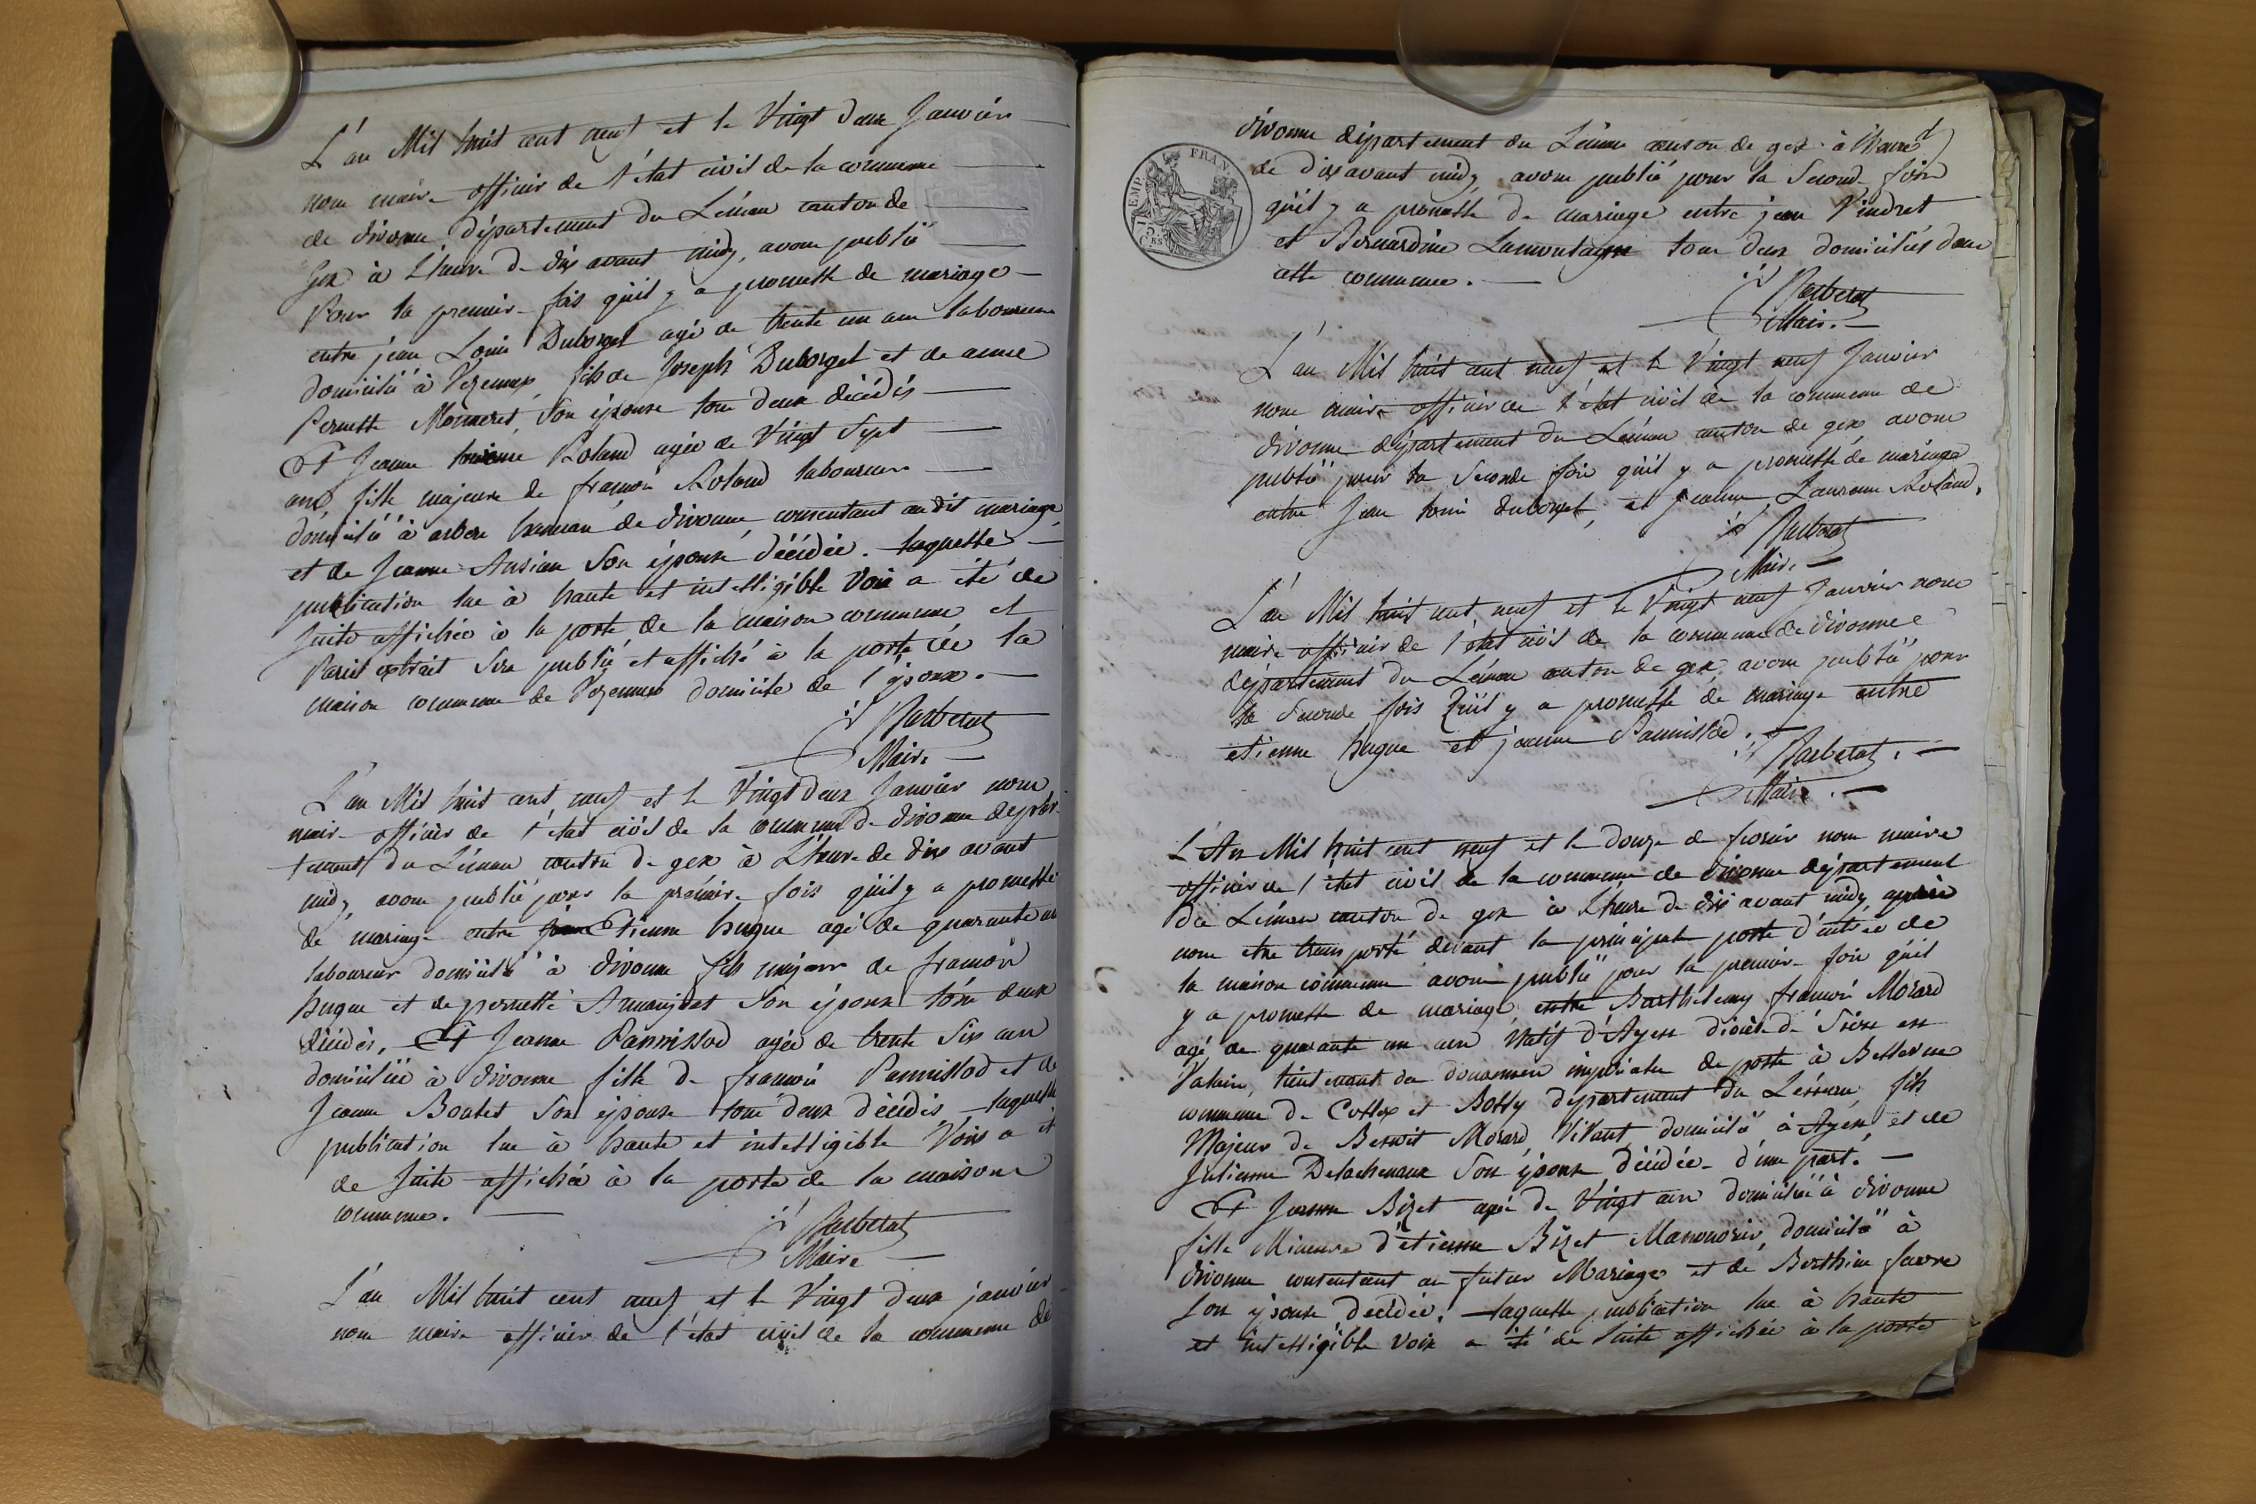 L'an Mil huit cent neuf et le Vingt deux Janvier
nous maire officier de l'état civil de la commune
de divonne département du Léman canton de
Gex à L'heure de dix avant midy, avons publié
Pour la premier fois qu'il y a promesse de mariage
entre jean Louis Duborget agé de trente un ans laboureur
domicilié à Vezennex, fils de Joseph Duborget et de anne
Pernette Monneret, son épouse tous deux décédés
Et Jeanne Roland agée de Vingt Sept
ans, fille majeure de françois Roland laboureur
domicilié à arbere hameau de divonne consentant au dit mariage,
et de Jeanne Ansian Son épouse décédée. laquelle
publication lue à haute et intelligible Voix a été de
suite affichée à la porte de la maison commune et
Pareil extrait sera publié et affiché à la porte de la
maison commune de Vezennex domicile de l'époux.
Barberat
Maire
L'an Mil huit cent neuf et le Vingt deux Janvier nous
maire officier de l'état civil de la commune de divonne dépar-
tement du Léman canton de gex à L'heure de dix avant
midy avons publié pour la premier fois qu'il y a promesse
de mariage entre Etienne hugue agé de quarante ans
laboureur domicilié à divonne fils majeur de françois
hugue et de pernette son épouse tous deux
décédés, Et Jeanne Pannissod agée de trente Six ans
domiciliée à divonne fille de françois Pannissod et de
Jeanne Boulet son épouse tous deux décédés laquelle
publication lue à haute et intelligible Voix a été
de suite affichée à la porte de la maison
commune.
Barberat
Maire
L'an Mil huit cent neuf et le Vingt deux janvier
nous maire officier de l'état civil de la commune de
divonne département du Léman canton de gex à l'heure
de dix avant midy avons publié pour la second fois
qu'il y a promesse de mariage entre jean Vindret
et Bernardine Lamontagne tous deux domiciliés dans
cette commune.
Barberat
Maire.
EMP. FRAN.
75
CES
L'an Mil huit cent neuf et le Vingt neuf Janvier
nous maire officier de l'état civil de la commune de
divonne département du Léman canton de gex avons
publié pour la seconde fois qu'il y a promesse de mariage
entre Jean louis duborget, et jeanne Roland.
Barberat
Maire
L'an Mil huit cent neuf et le Vingt neuf Janvier nous
maire officier de l'état civil de la commune de divonne
département du Léman canton de gex, avons publié pour
la seconde fois Qu'il y a promesse de mariage entre
etienne hugue et jeanne Pannissod.
Barberat.
Maire.
L'An Mil huit cent neuf et le douze de fevrier nous maire
officier de l'état civil de la commune de divonne département
du Léman canton de gex à L'heure de dix avant midy après
nous etre transporté devant la principale porte d'entrée de
la maison commune avons publié pour la premier fois qu'il
y a promesse de mariage entre Barthelemy françois Morard
agé de quarante un ans Natif d'Ayen diocèse de Sion en
Valais, lieutenant des douannes imperiales de poste à Bellevue
commune de Collex et Bossy département du Léman, fils
Majeur de Benoit Morard, Vivant, domicilié à Ayen, et de
Julienne Delachenaux Son épouse décédée d'une part.
Et Jeanne Bizet agée de Vingt ans domiciliée à divonne
fille Mineure d'étienne Bizet Manouvrier domicilié à
divonne consentant au futur Mariage et de Berthine favre
son épouse decédée. laquelle publication lue à haute
et intelligible Voix a été de Suite affichée à la porte